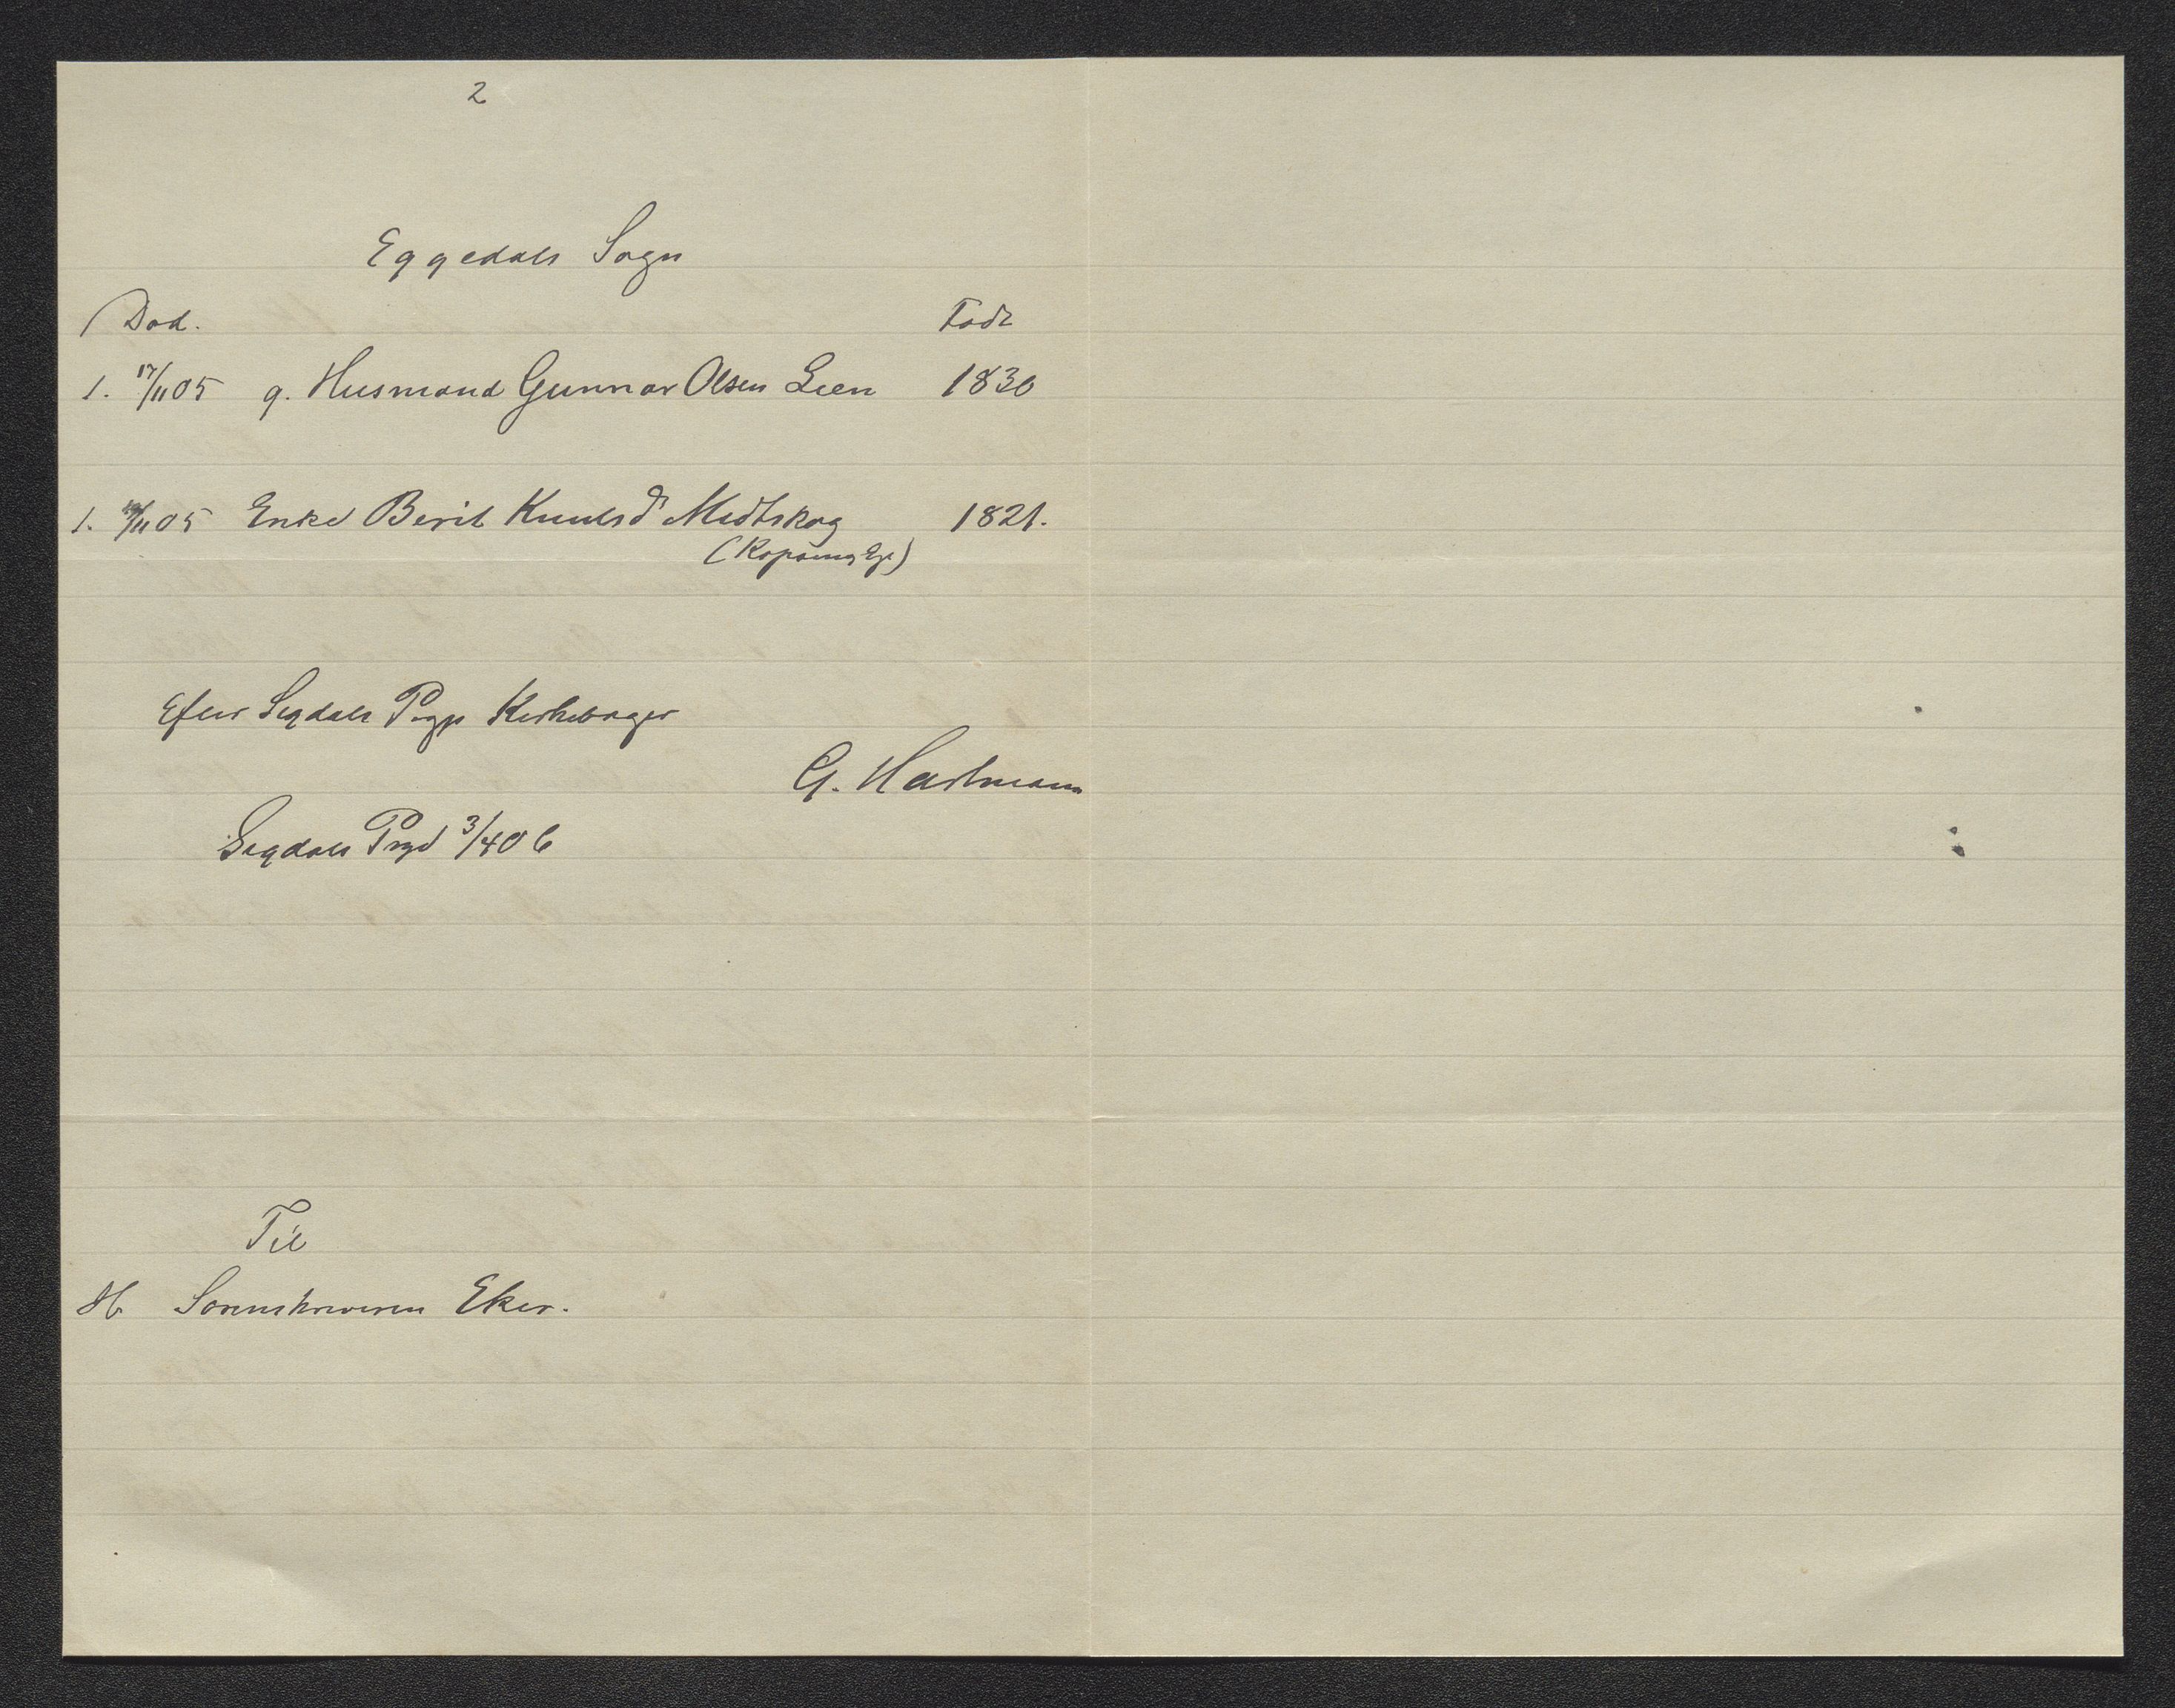 2
Eggedals Sogn
Død. Født
1. 17/11 05 g. Husmand Gunnar Olsen Lien 1830
1. /11 05 Enke Berit Knutsdr Medtskog 1821.
Efter Sigdals Prgjs Kirkebøger
G. Hartmann
Sigdals Prgd 3/4 06
Til
Hr Sorenskriveren Eker.